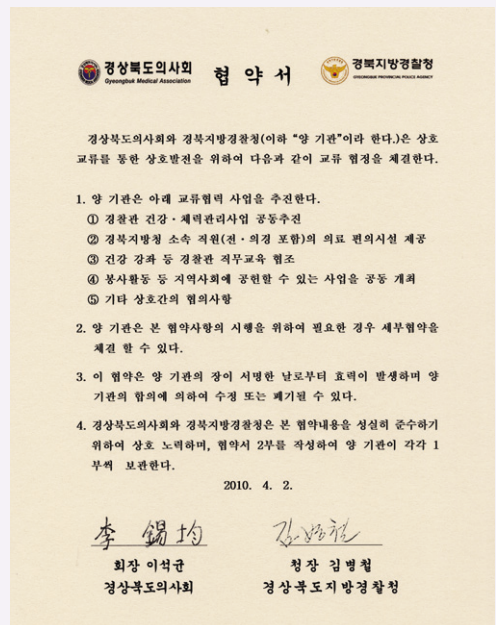 경상북도의사회
Gyeongbuk Medical Association
협 약 서
경북지방경찰청
GYEONGBUK PROVINCIAL POLICE AGENCY
경상북도의사회와 경북지방경찰청(이하 “양 기관”이라 한다.)은 상호
교류를 통한 상호발전을 위하여 다음과 같이 교류 협정을 체결한다.
1. 양 기관은 아래 교류협력 사업을 추진한다.
① 경찰관 건강·체력관리사업 공동추진
② 경북지방청 소속 직원(전·의경 포함)의 의료 편의시설 제공
③ 건강 강좌 등 경찰관 직무교육 협조
④ 봉사활동 등 지역사회에 공헌할 수 있는 사업을 공동 개최
⑤ 기타 상호간의 협의사항
2. 양 기관은 본 협약사항의 시행을 위하여 필요한 경우 세부협약을
체결 할 수 있다.
3. 이 협약은 양 기관의 장이 서명한 날로부터 효력이 발생하며 양
기관의 합의에 의하여 수정 또는 폐기될 수 있다.
4. 경상북도의사회와 경북지방경찰청은 본 협약내용을 성실히 준수하기
위하여 상호 노력하며, 협약서 2부를 작성하여 양 기관이 각각 1
부씩 보관한다.
2010. 4. 2.
李 錫 均
김병철
회장 이석균
청장 김병철
경상북도의사회
경상북도지방경찰청